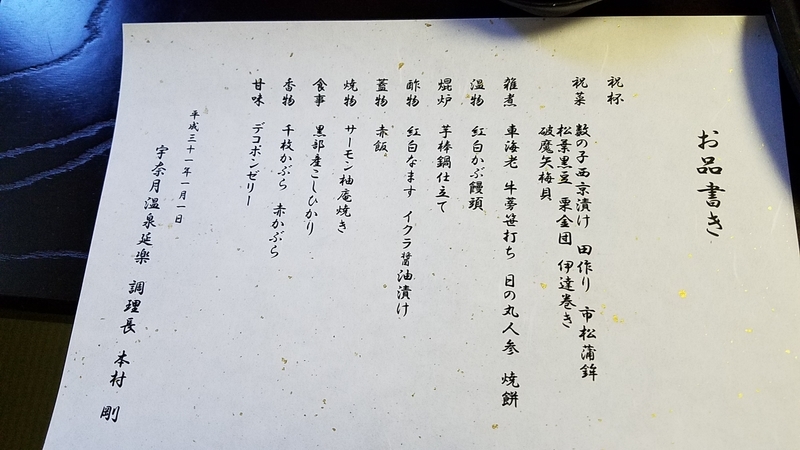 お品書き
祝杯
祝菜 数の子西京漬け 田作り 市松蒲鉾
松葉黒豆 栗金団 伊達巻き
破魔矢梅貝
雑煮 車海老 牛蒡笹打ち 日の丸人参 焼餅
温物 紅白かぶ饅頭
焜炉 芋棒鍋仕立て
酢物 紅白なます イクラ醤油漬け
蓋物 赤飯
焼物 サーモン柚庵焼き
食事 黒部産こしひかり
香物 千枚かぶら 赤かぶら
甘味 デコポンゼリー
平成三十一年一月一日
宇奈月温泉延楽 調理長 本村 剛